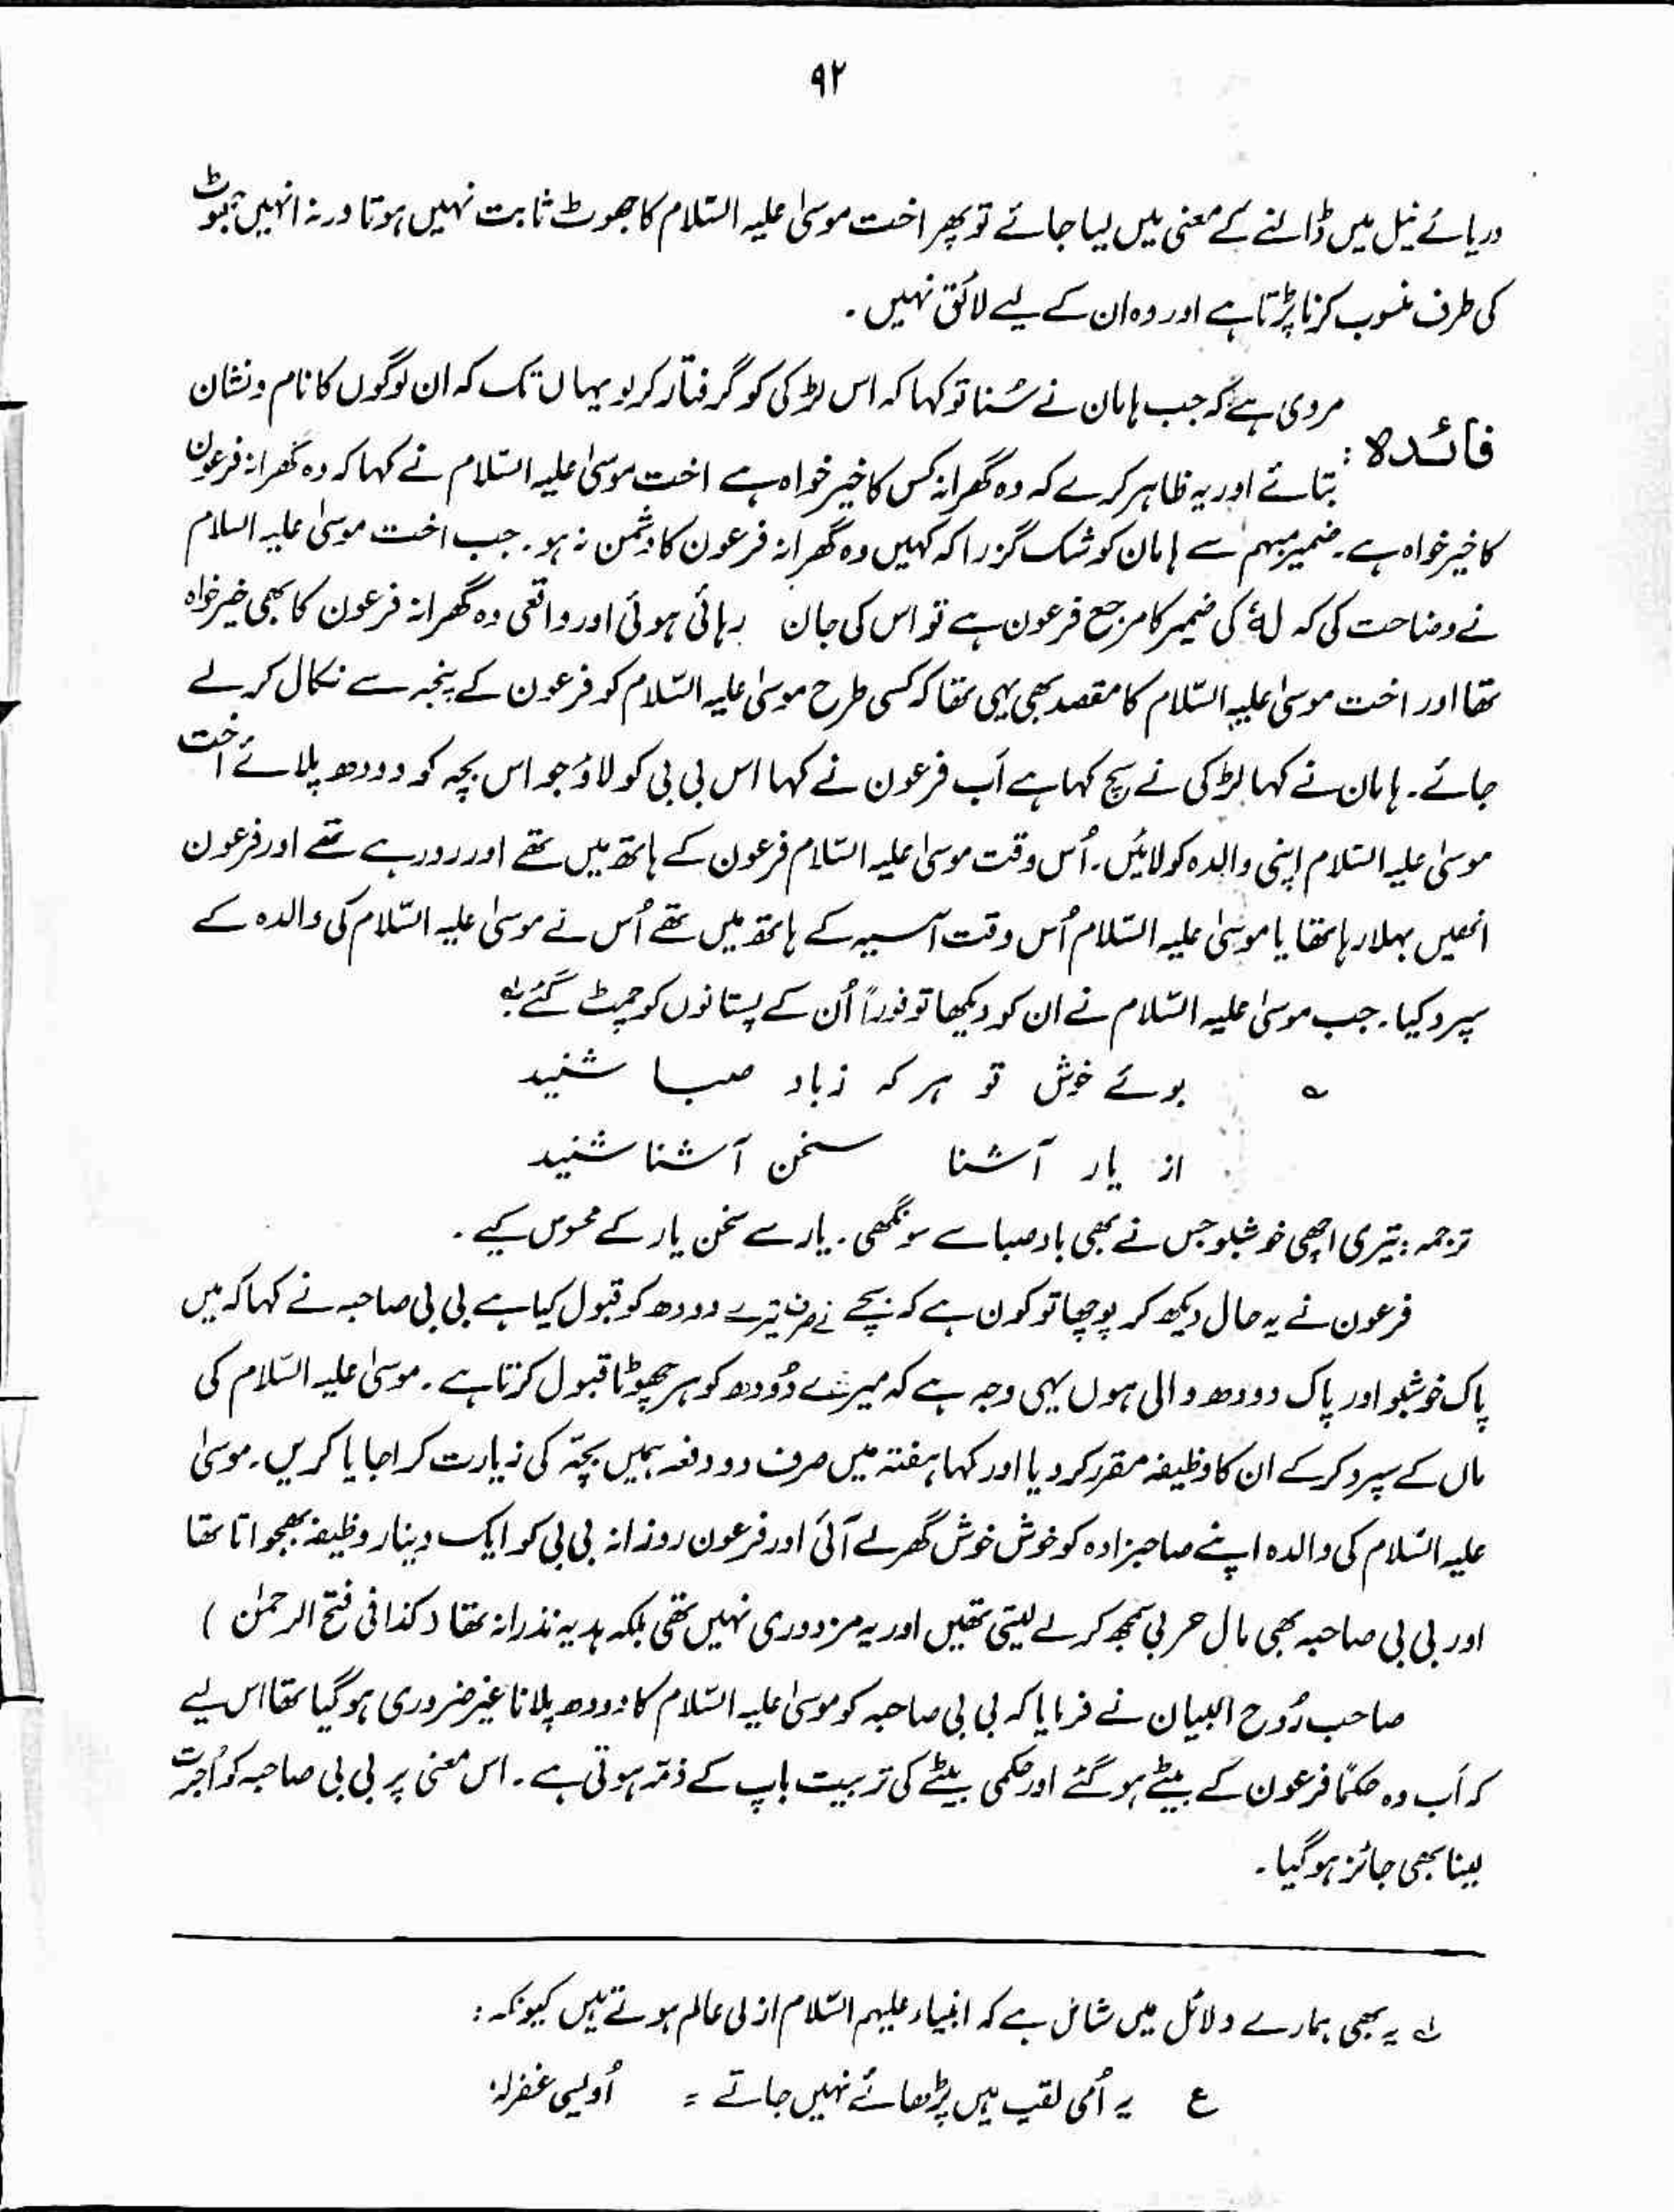 ۹۲
دریائے نیل میں ڈالنے کے معنی میں لیا جائے تو پھر اخت موسیٰ علیہ السّلام کا جھوٹ ثابت نہیں ہوتا ورنہ انہیں جھوٹ
کی طرف منسوب کرنا پڑتا ہے اور وہ ان کے لیے لائق نہیں ۔
مروی ہے کہ جب ہامان نے سُنا تو کہا کہ اس لڑکی کو گرفتار کر لو یہاں تک کہ ان لوگوں کا نام و نشان
فائدہ :
بتائے اور یہ ظاہر کرے کہ وہ گھرانہ کس کا خیر خواہ ہے اخت موسیٰ علیہ السّلام نے کہا کہ وہ گھرانہ فرعون
کا خیر خواہ ہے ۔ ضمیر مبہم سے ہامان کو شک گزرا کہ کہیں وہ گھرانہ فرعون کا دشمن نہ ہو ۔ جب اخت موسیٰ علیہ السلام
نے وضاحت کی کہ لہٗ کی ضمیر کا مرجع فرعون ہے تو اس کی جان رہائی ہوئی اور واقعی وہ گھرانہ فرعون کا بھی خیر خواہ
تھا اور اخت موسیٰ علیہ السّلام کا مقصد بھی یہی تھا کہ کسی طرح موسیٰ علیہ السّلام کو فرعون کے پنجہ سے نکال کر لے
جائے ۔ ہامان نے کہا لڑکی نے سچ کہا ہے اَب فرعون نے کہا اس بی بی کو لاؤ جو اس بچہ کو دودھ پلائے اخت
موسیٰ علیہ السّلام اپنی والدہ کو لائیں ۔ اُس وقت موسیٰ علیہ السّلام فرعون کے ہاتھ میں تھے اور رو رہے تھے اور فرعون
انھیں بہلا رہا تھا یا موسیٰ علیہ السّلام اُس وقت آسیہ کے ہاتھ میں تھے اُس نے موسیٰ علیہ السّلام کی والدہ کے
سپرد کیا ۔ جب موسیٰ علیہ السّلام نے ان کو دیکھا تو فوراً اُن کے پستانوں کو چمٹ گئے لے
؎ بوئے خوش تو ہر کہ زباد صبا شنید
از یار آشنا سخن آشنا شنید
ترجمہ : تیری اچھی خوشبو جس نے بھی باد صبا سے سونگھی ۔ یار سے سخن یار کے محسوس کیے ۔
فرعون نے یہ حال دیکھ کر پوچھا تو کون ہے کہ بچے نے صرف تیرے دودھ کو قبول کیا ہے بی بی صاحبہ نے کہا کہ میں
پاک خوشبو اور پاک دودھ والی ہوں یہی وجہ ہے کہ میرے دُودھ کو ہر چھوٹا قبول کرتا ہے ۔ موسیٰ علیہ السّلام کی
ماں کے سپرد کر کے ان کا وظیفہ مقرر کر دیا اور کہا ہفتہ میں صرف دو دفعہ ہمیں بچّہ کی زیارت کرا جایا کریں ۔ موسیٰ
علیہ السّلام کی والدہ اپنے صاحبزادہ کو خوش خوش گھر لے آئی اور فرعون روزانہ بی بی کو ایک دینار وظیفہ بھجواتا تھا
اور بی بی صاحبہ بھی مال حربی سمجھ کر لے لیتی تھیں اور یہ مزدوری نہیں تھی بلکہ ہدیہ نذرانہ تھا ( کذا فی فتح الرحمٰن )
صاحب رُوح البیان نے فرمایا کہ بی بی صاحبہ کو موسیٰ علیہ السّلام کا دودھ پلانا غیر ضروری ہو گیا تھا اس لیے
کہ اَب وہ حکماً فرعون کے بیٹے ہو گئے اور حکمی بیٹے کی تربیت باپ کے ذمّہ ہوتی ہے ۔ اس معنی پر بی بی صاحبہ کو اُجرت
لینا بھی جائز ہو گیا ۔
لے یہ بھی ہمارے دلائل میں شامل ہے کہ انبیاء علیہم السّلام ازلی عالم ہوتے ہیں کیونکہ :
ع یہ اُمی لقب ہیں پڑھائے نہیں جاتے = اُویسی غفرلہٗ